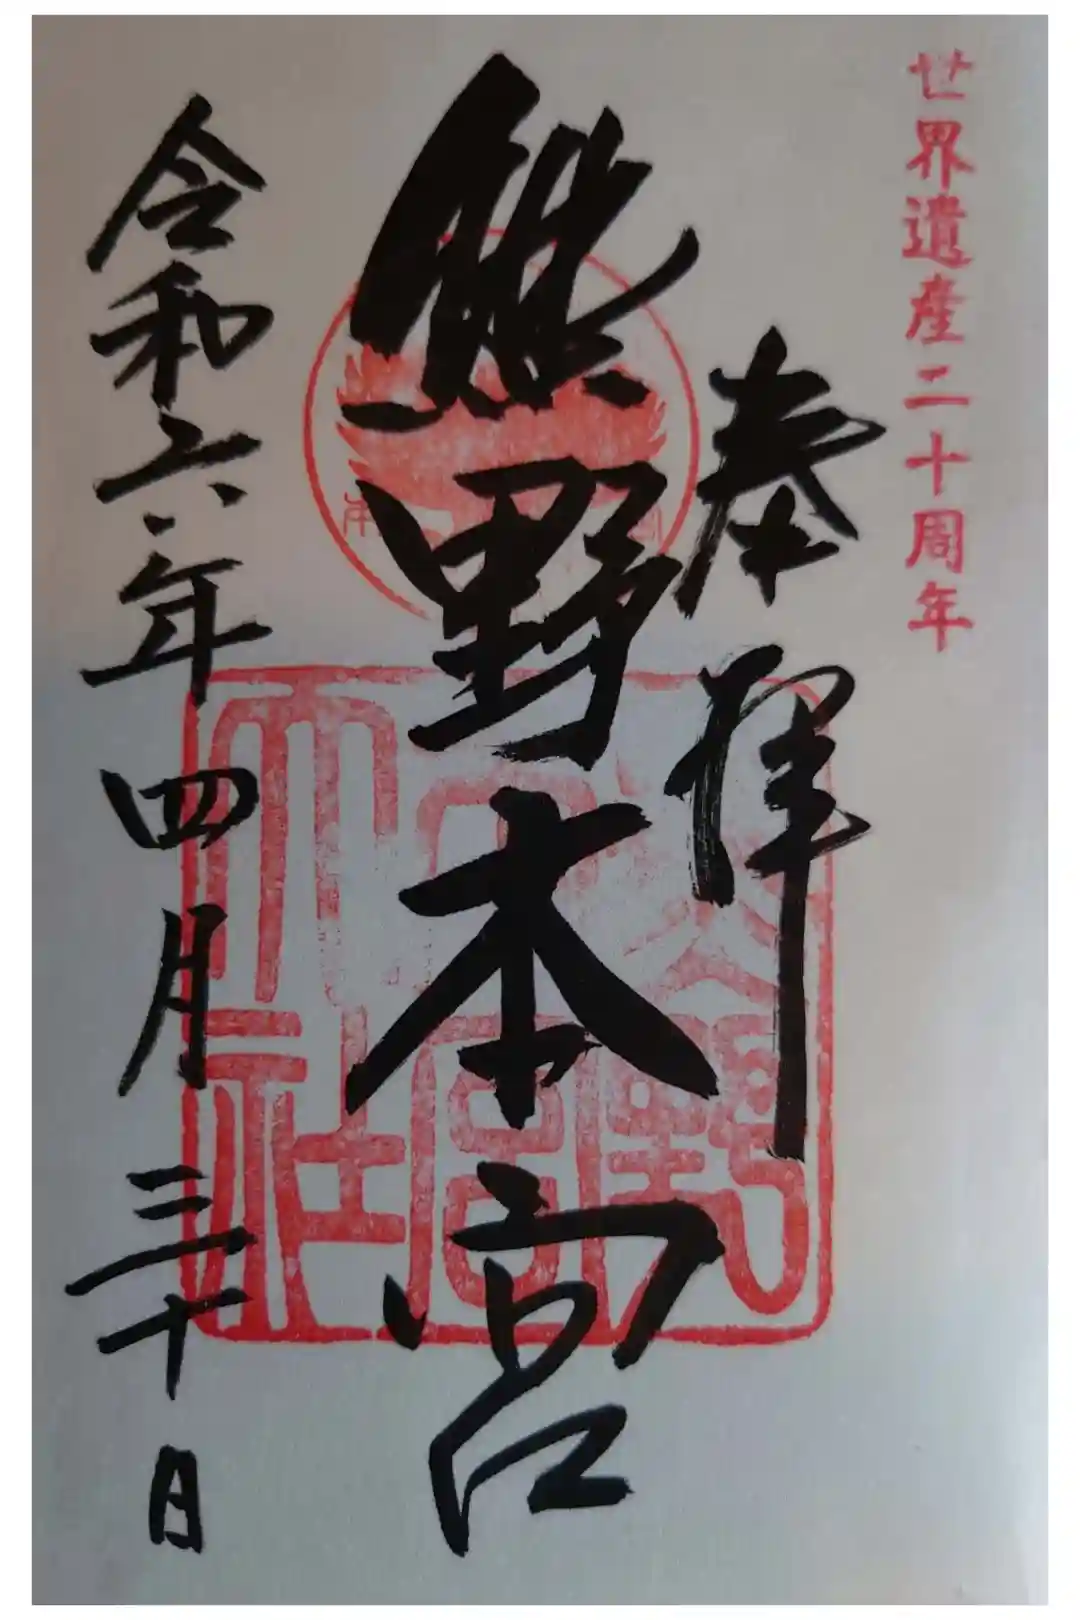 世界遺産二十周年
奉拝
熊野本宮
令和六年四月三十日